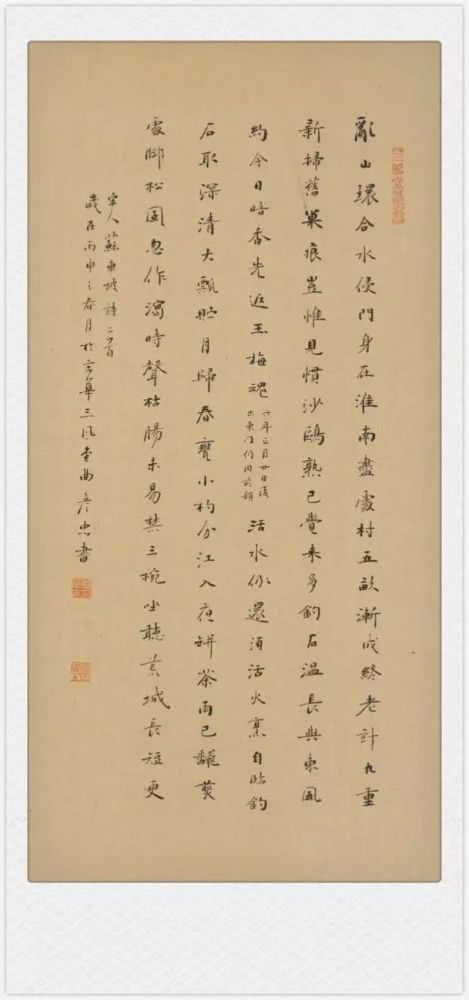 亂山環合水侵門身在淮南盡處村五畝漸成終老計九重
新掃舊巢痕豈惟見慣沙鷗熟已覺來多釣石溫長與東風
約今日暗香先返玉梅魂
六年正月廿日復
出東門仍用前韻
活水仍還須活火烹自臨釣
石取深清大瓢貯月歸春甕小杓分江入夜缾茶雨已飜煎
處腳松風忽作瀉時聲枯腸未易禁三椀坐聽荒城長短更
宋人蘇東坡詩二首
歲在丙申之春月於京華三風堂曲彥忠書